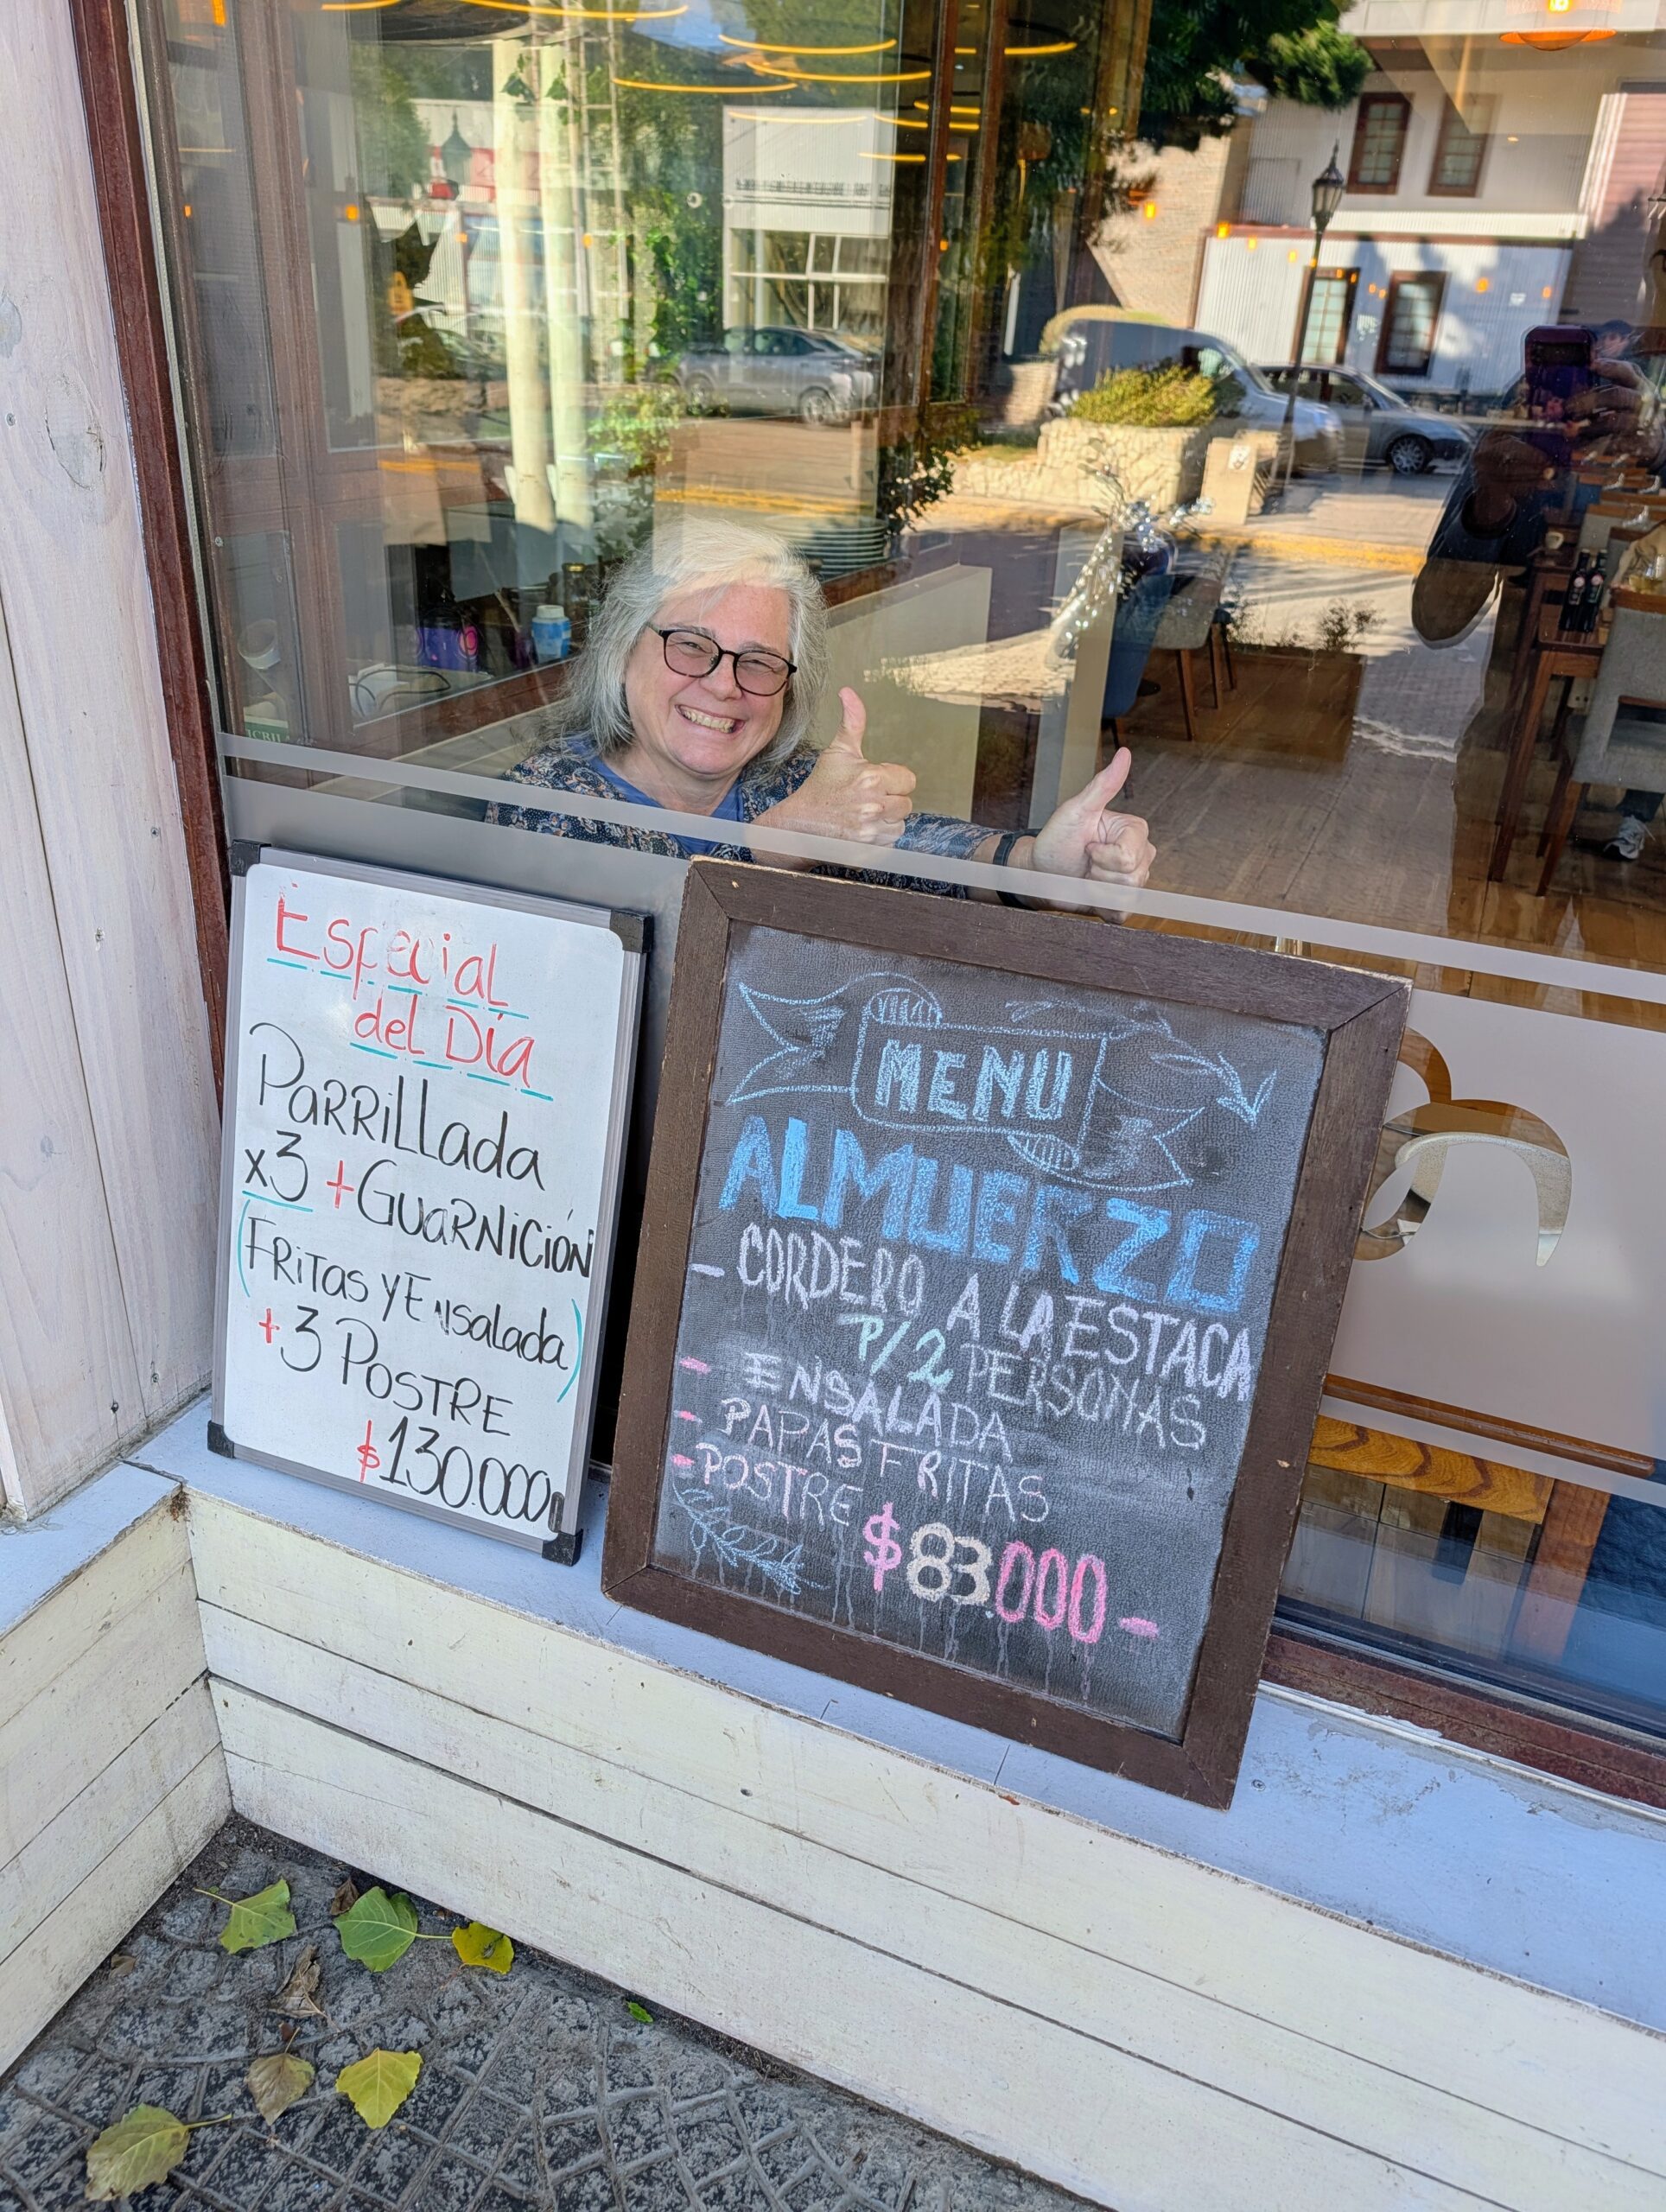 Especial
del Día
Parrillada
x3 + Guarnición
(Fritas y Ensalada)
+3 Postre
$130.000
MENU
ALMUERZO
- CORDERO A LA ESTACA
P/2 PERSONAS
- ENSALADA
- PAPAS FRITAS
- POSTRE
$83.000-